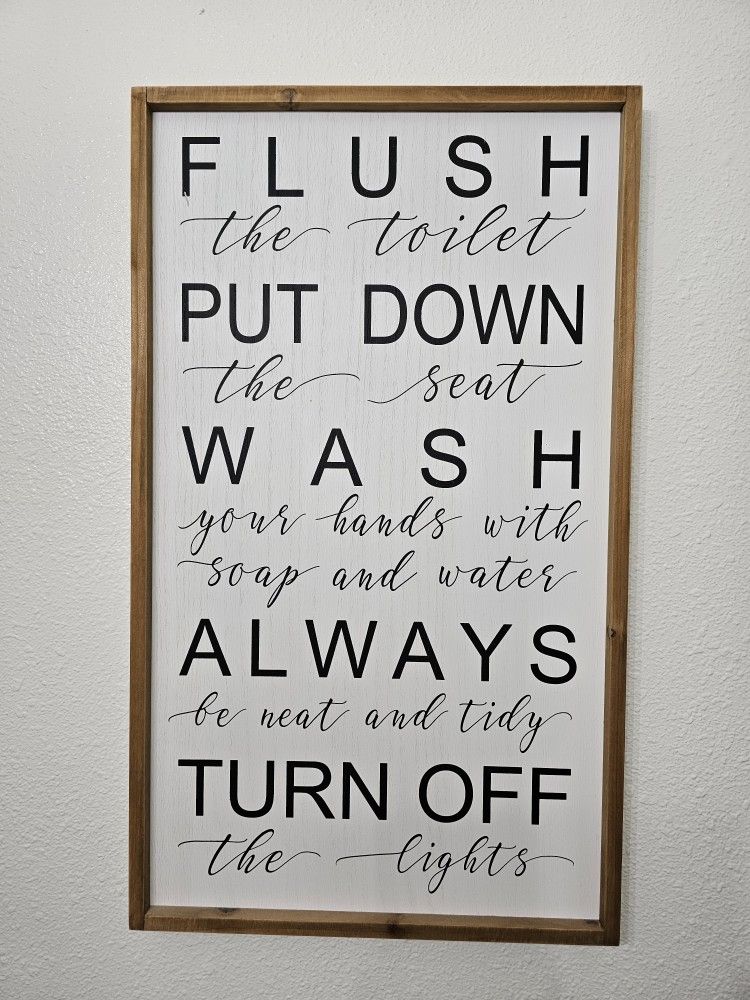 FLUSH
the toilet
PUT DOWN
the seat
WASH
your hands with
soap and water
ALWAYS
be neat and tidy
TURN OFF
the lights